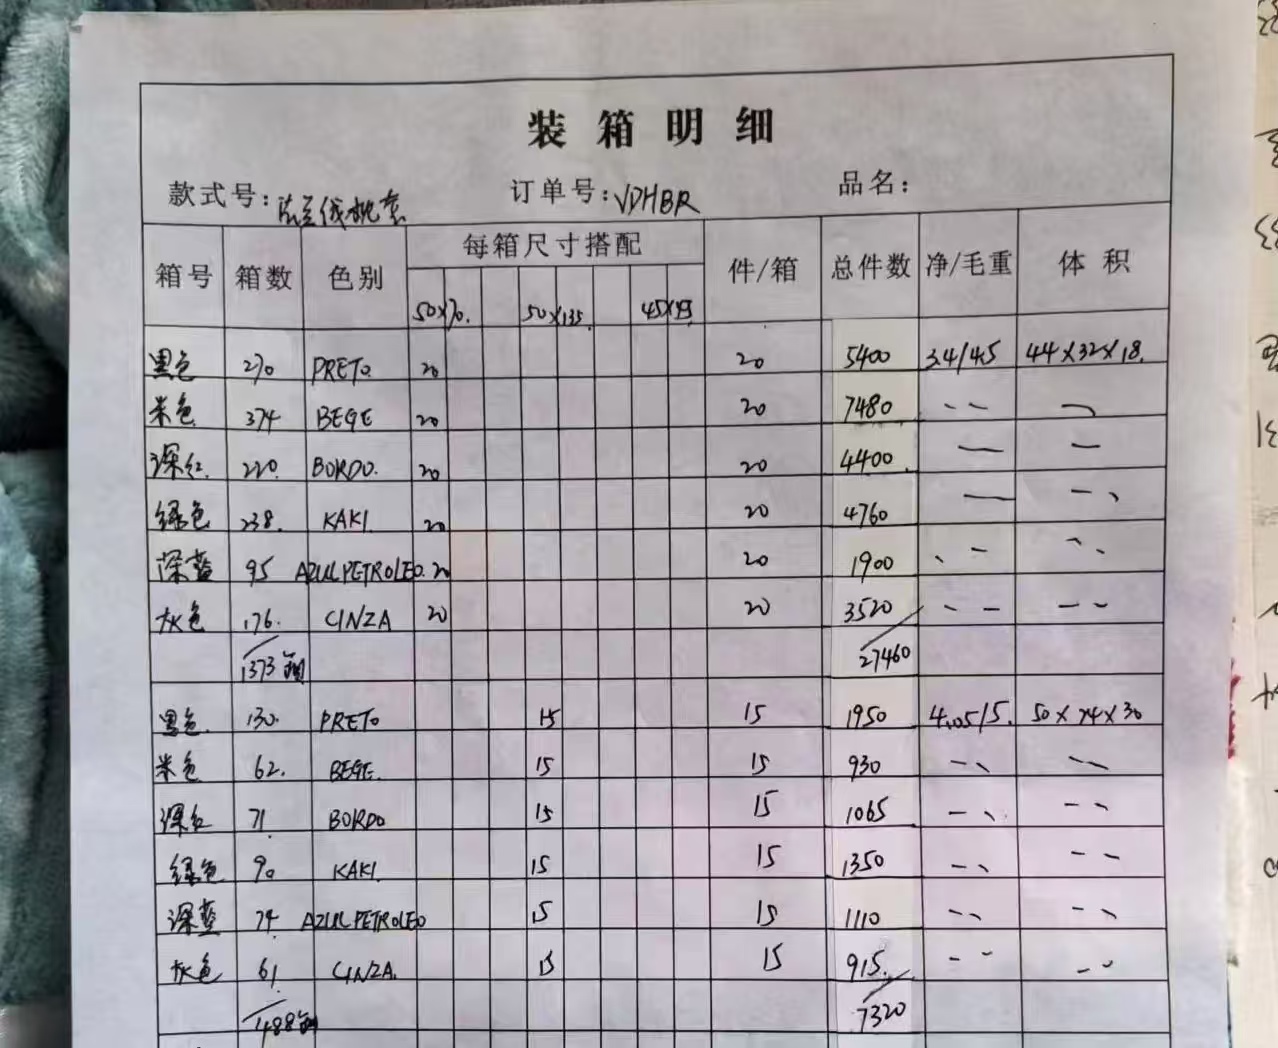 装箱明细
款式号：法兰绒枕套 订单号：VDHBR 品名：
箱号 箱数 色别 每箱尺寸搭配 件/箱 总件数 净/毛重 体积
50×70. 50×135. 45×45
黑色 270 PRETO. 20 20 5400 3.4/4.5 44×32×18.
米色 374 BEGE 20 20 7480
深红. 220. BORDO. 20 20 4400
绿色 238. KAKI. 20 20 4760
深蓝 95 AZULPETROLEO. 20 20 1900
灰色 176. CINZA 20 20 3520
1373箱 27460
黑色. 130. PRETO 15 15 1950 4.05/5. 50×24×30
米色 62. BEGE. 15 15 930
深红 71. BORDO 15 15 1065
绿色 90 KAKI. 15 15 1350
深蓝 74. AZULPETROLEO 15 15 1110
灰色 61. CINZA. 15 15 915.
488箱 7320